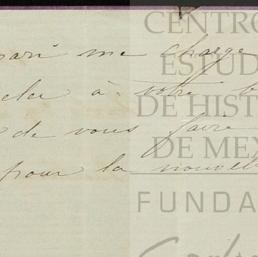 mari me charge
à votre
de vous faire
pour la nouvelle
CENTRO
ESTUD
DE HIST
DE MEX
FUNDA